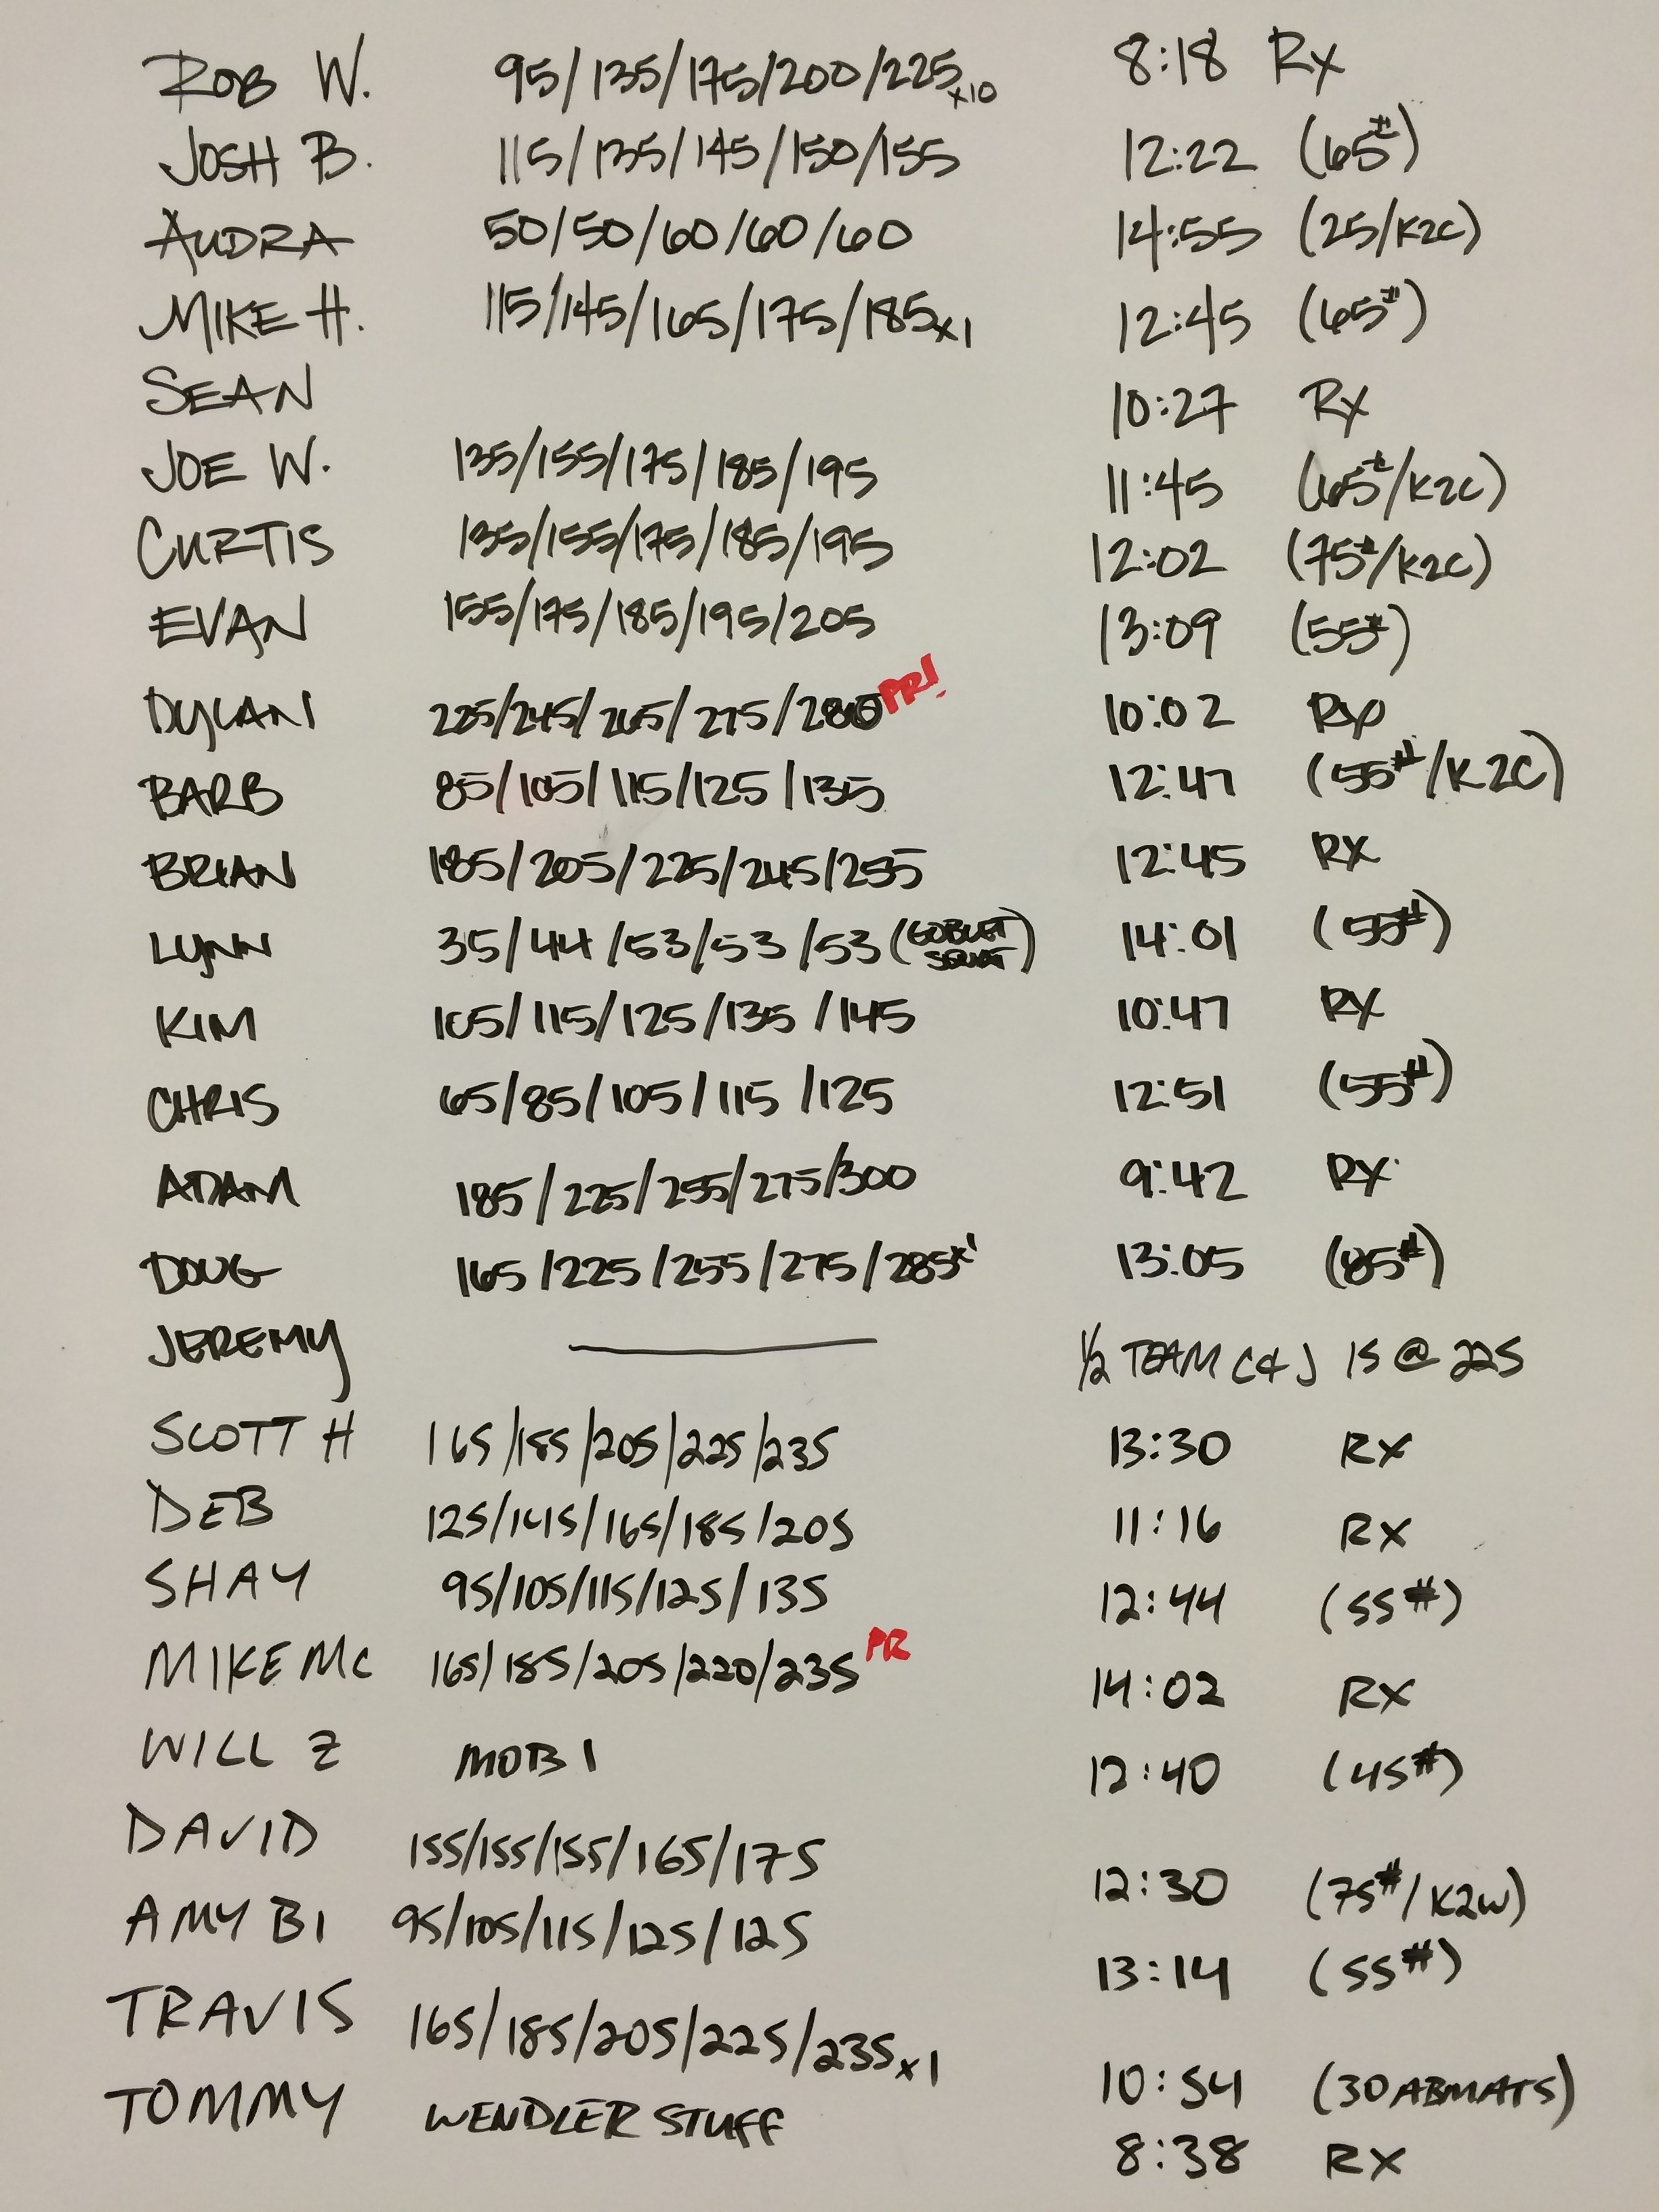 ROB W. 95/135/175/200/225x10 8:18 RX
JOSH B. 115/135/145/150/155 12:22 (65#)
AUDRA 50/50/60/60/60 14:55 (25/K2C)
MIKE H. 115/145/165/175/185x1 12:45 (65#)
SEAN 10:27 RX
JOE W. 135/155/175/185/195 11:45 (65#/K2C)
CURTIS 135/155/175/185/195 12:02 (75#/K2C)
EVAN 155/175/185/195/205 13:09 (55#)
DYLAN 225/245/265/275/280 PR! 10:02 RX
BARB 85/105/115/125/135 12:47 (55#/K2C)
BRIAN 185/205/225/245/255 12:45 RX
LYNN 35/44/53/53/53 (GOBLET SQUAT) 14:01 (55#)
KIM 105/115/125/135/145 10:47 RX
CHRIS 65/85/105/115/125 12:51 (55#)
ADAM 185/225/255/275/300 9:42 RX
DOUG 165/225/255/275/285x1 13:05 (85#)
JEREMY — 1/2 TEAM C&J 15 @ 225
SCOTT H 165/185/205/225/235 13:30 RX
DEB 125/145/165/185/205 11:16 RX
SHAY 95/105/115/125/135 12:44 (55#)
MIKE MC 165/185/205/220/235 PR 14:02 RX
WILL Z MOB 1 12:40 (45#)
DAVID 155/155/155/165/175 12:30 (75#/K2W)
AMY B1 95/105/115/125/125 13:14 (55#)
TRAVIS 165/185/205/225/235x1 10:54 (30 ABMATS)
TOMMY WENDLER STUFF 8:38 RX